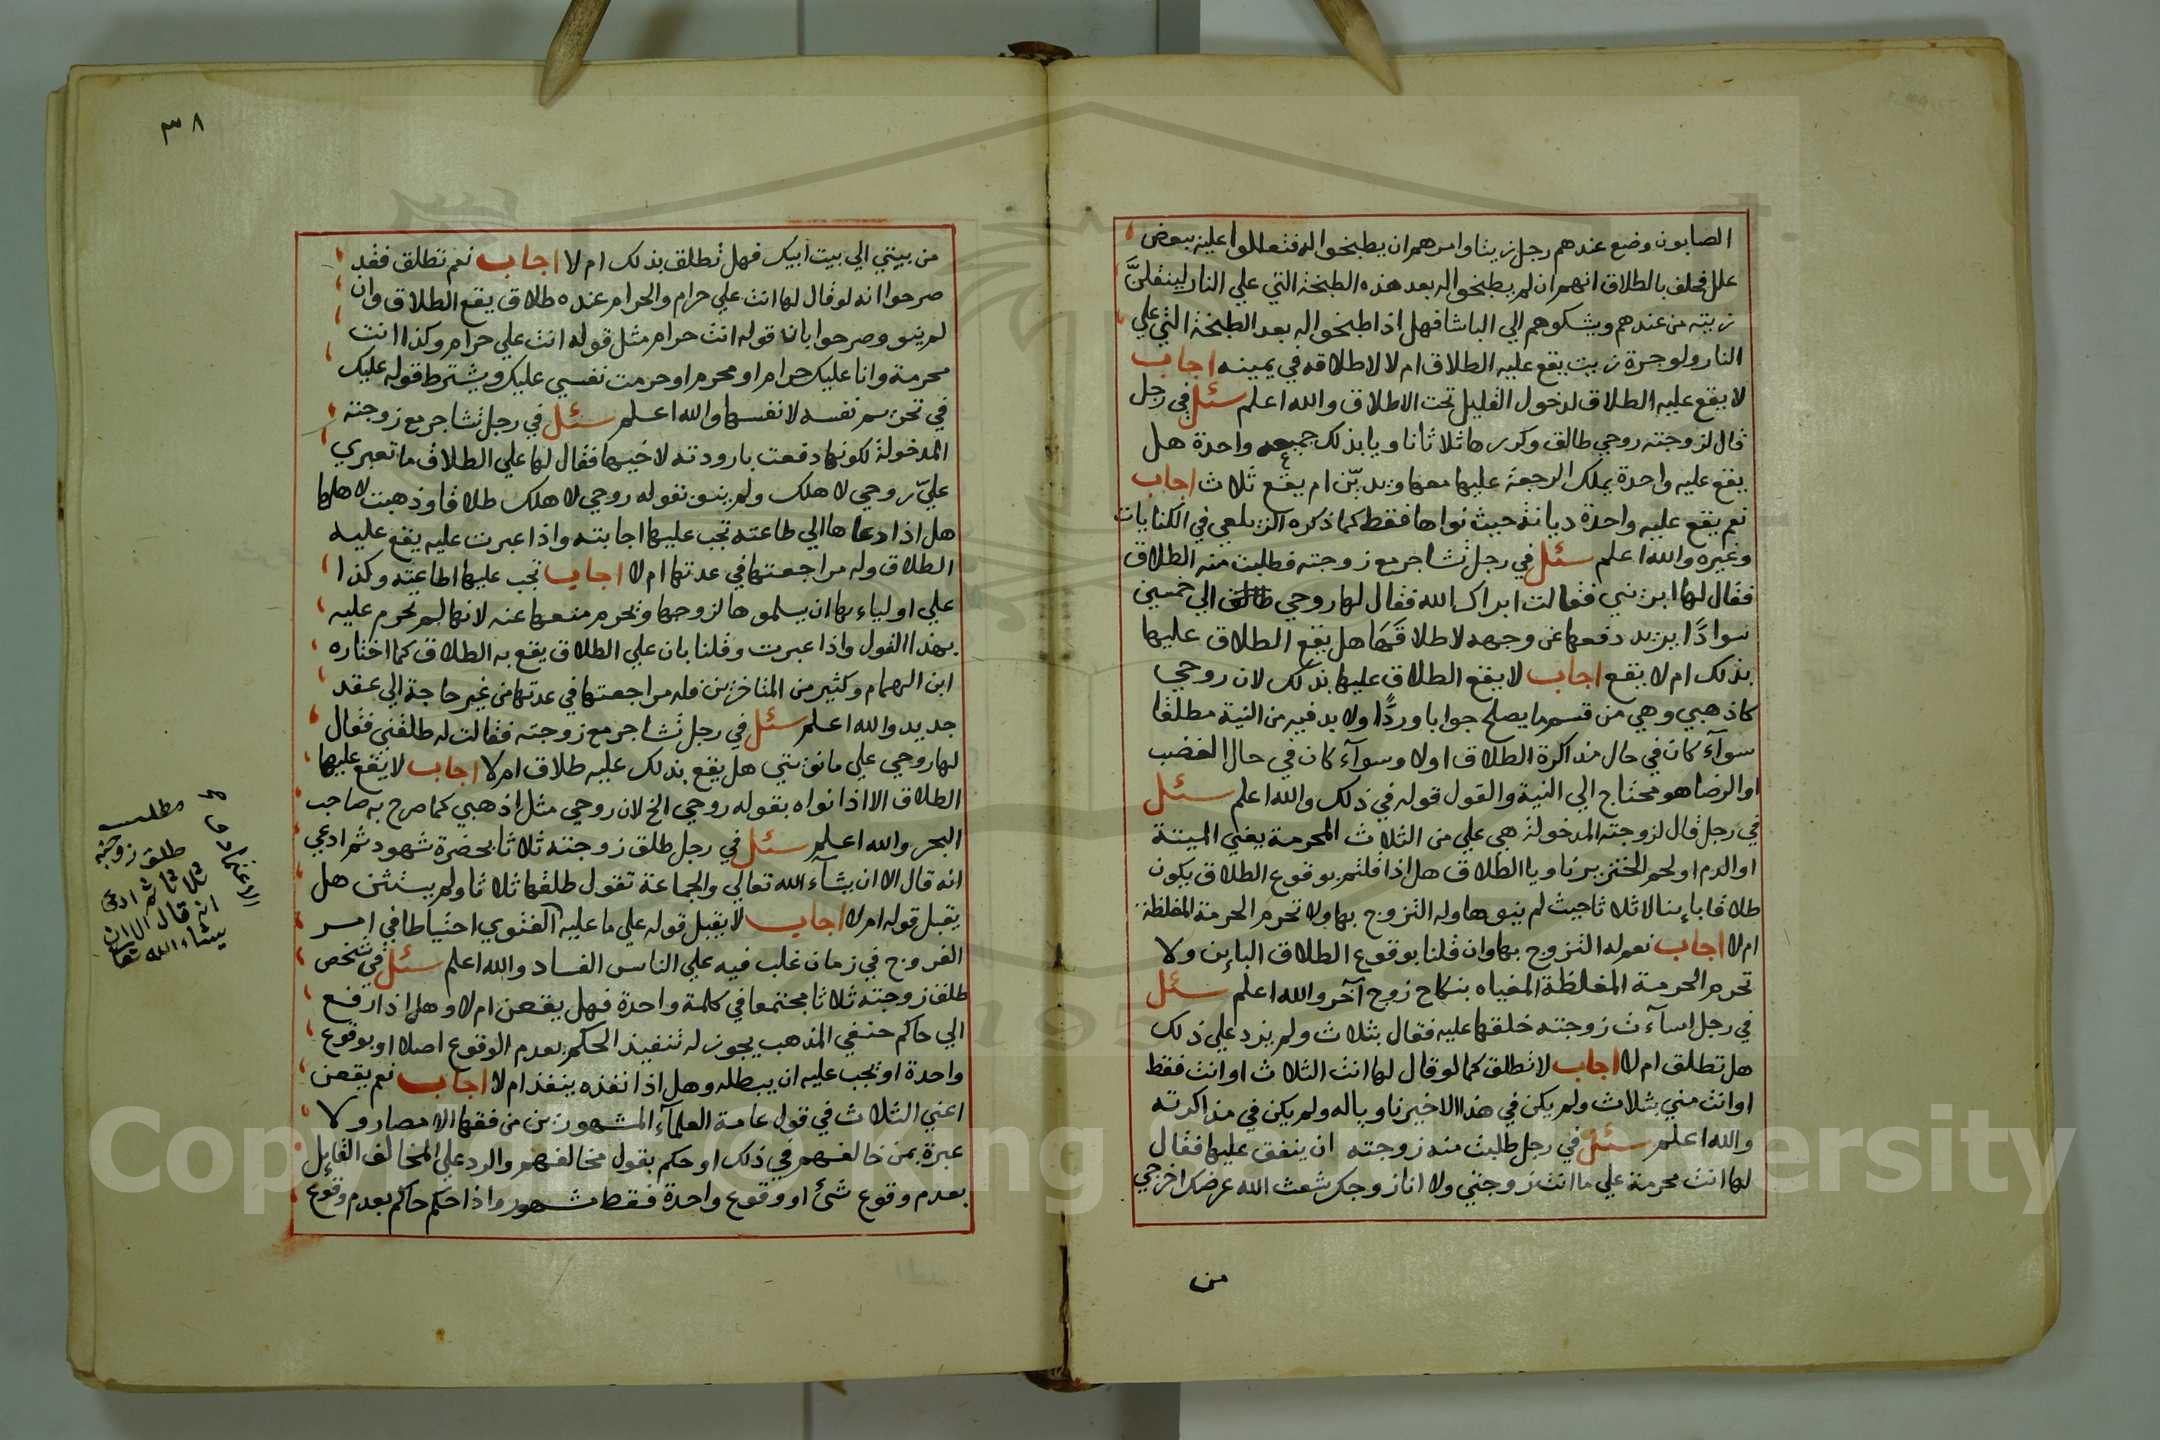 الصابون وضع عندهم رجل زيتا وامرهم ان يطبخوا له فتعللوا عليه ببعض
علل فحلف بالطلاق انهم ان لم يطبخوا له بعد هذه الطبخة التي علي النار لينقلنَّ
زيته من عندهم ويشكوهم الي الباشا فهل اذا طبخوا له بعد الطبخة التي علي
النار ولو جرة زيت يقع عليه الطلاق ام لا لاطلاقه في يمينه اجاب
لا يقع عليه الطلاق لدخول القليل تحت الاطلاق والله اعلم سئل في رجل
قال لزوجته روحي طالق وكررها ثلاثا ناويا بذلك جميعه واحدة هل
يقع عليه واحدة يملك الرجعة عليها معها ويديّن ام يقع ثلاث اجاب
نعم يقع عليه واحدة ديانة حيث نواها فقط كما ذكره الزيلعي في الكنايات
وغيره والله اعلم سئل في رجل تشاجر مع زوجته فطلبت منه الطلاق
فقال لها ابرئيني فقالت ابراك الله فقال لها روحي طالق الي خمسين
سوادًا يريد دفعها عن وجهه لا طلاقها هل يقع الطلاق عليها
بذلك ام لا يقع اجاب لا يقع الطلاق عليها بذلك لان روحي
كاذهبي وهي من قسم ما يصلح جوابا وردًّا ولا بد فيه من النية مطلقا
سوآء كان في حال مذاكرة الطلاق اولا وسوآء كان في حال الغضب
او الرضا هو محتاج الي النية والقول قوله في ذلك والله اعلم سئل
في رجل قال لزوجته المدخولة هي علي من الثلاث المحرمة يعني الميتة
او الدم او لحم الخنزير ناويا الطلاق هل اذا قلتم بوقوع الطلاق يكون
طلاقا باينا لا ثلاثا حيث لم ينوها وله التزوج بها ولا تحرم الحرمة المغلظة
ام لا اجاب نعم له التزوج بها وان قلنا بوقوع الطلاق الباين ولا
تحرم الحرمة المغلظة المغياه بنكاح زوج آخر والله اعلم سئل
في رجل اسآءت زوجته خلقها عليه فقال بثلاث ولم يزد علي ذلك
هل تطلق ام لا اجاب لا تطلق كما لو قال لها انت الثلاث او انت فقط
او انت مني بثلاث ولم يكن في هذا الاخير ناويا له ولم يكن في مذاكرته
والله اعلم سئل في رجل طلبت منه زوجته ان ينفق عليها فقال
لها انت محرمة علي ما انت زوجتي ولا انا زوجك شعث الله عرضك اخرجي
من
٣٨
من بيتي الي بيت ابيك فهل تطلق بذلك ام لا اجاب نعم تطلق فقد
صرحوا انه لو قال لها انت علي حرام والحرام عنده طلاق يقع الطلاق وان
لم ينو وصرحوا بان قوله انت حرام مثل قوله انت علي حرام وكذا انت
محرمة وانا عليك حرام او محرم او حرمت نفسي عليك ويشترط قوله عليك
في تحريم نفسه لا نفسها والله اعلم سئل في رجل تشاجر مع زوجته
المدخولة لكونها دفعت بارودته لاخيها فقال لها علي الطلاق ما تعبري
عليّ روحي لاهلك ولم ينو بقوله روحي لاهلك طلاقا وذهبت لاهلها
هل اذا دعاها الي طاعته تجب عليها اجابته واذا عبرت عليه يقع عليه
الطلاق وله مراجعتها في عدتها ام لا اجاب تجب عليها اطاعته وكذا
علي اولياءها ان يسلموها لزوجها ويحرم منعها عنه لانها لم تحرم عليه
بهذا القول واذا عبرت وقلنا بان علي الطلاق يقع به الطلاق كما اختاره
ابن الهمام وكثير من المتاخرين فله مراجعتها في عدتها من غير حاجة الي عقد
جديد والله اعلم سئل في رجل تشاجر مع زوجته فقالت له طلقني فقال
لها روحي علي مانويتي هل يقع بذلك عليه طلاق ام لا اجاب لا يقع عليها
الطلاق الا اذا نواه بقوله روحي الخ لان روحي مثل اذهبي كما صرح به صاحب
البحر والله اعلم سئل في رجل طلق زوجته ثلاثا بحضرة شهود ثم ادعي
انه قال الا ان يشآء الله تعالي والجماعة تقول طلقها ثلاثا ولم يستثن هل
يقبل قوله ام لا اجاب لا يقبل قوله علي ما عليه الفتوي احتياطا في امر
الفروج في زمان غلب فيه علي الناس الفساد والله اعلم سئل في شخص
طلق زوجته ثلاثا مجتمعا في كلمة واحدة فهل يقعن ام لا وهل اذا رفع
الي حاكم حنفي المذهب يجوز له تنفيذ الحكم بعدم الوقوع اصلا او بوقوع
واحدة او يجب عليه ان يبطله وهل اذا نفذه ينفذ ام لا اجاب نعم يقعن
اعني الثلاث في قول عامة العلمآء المشهورين من فقها الامصار ولا
عبرة بمن خالفهم في ذلك او حكم بقول مخالفهم والرد علي المخالف القايل
بعدم وقوع شئ او وقوع واحدة فقط مشهور واذا حكم حاكم بعدم وقوع
مطلب
طلق زوجته
ثلاثا ثم ادعى
انه قال الا ان
يشاء الله تعالى